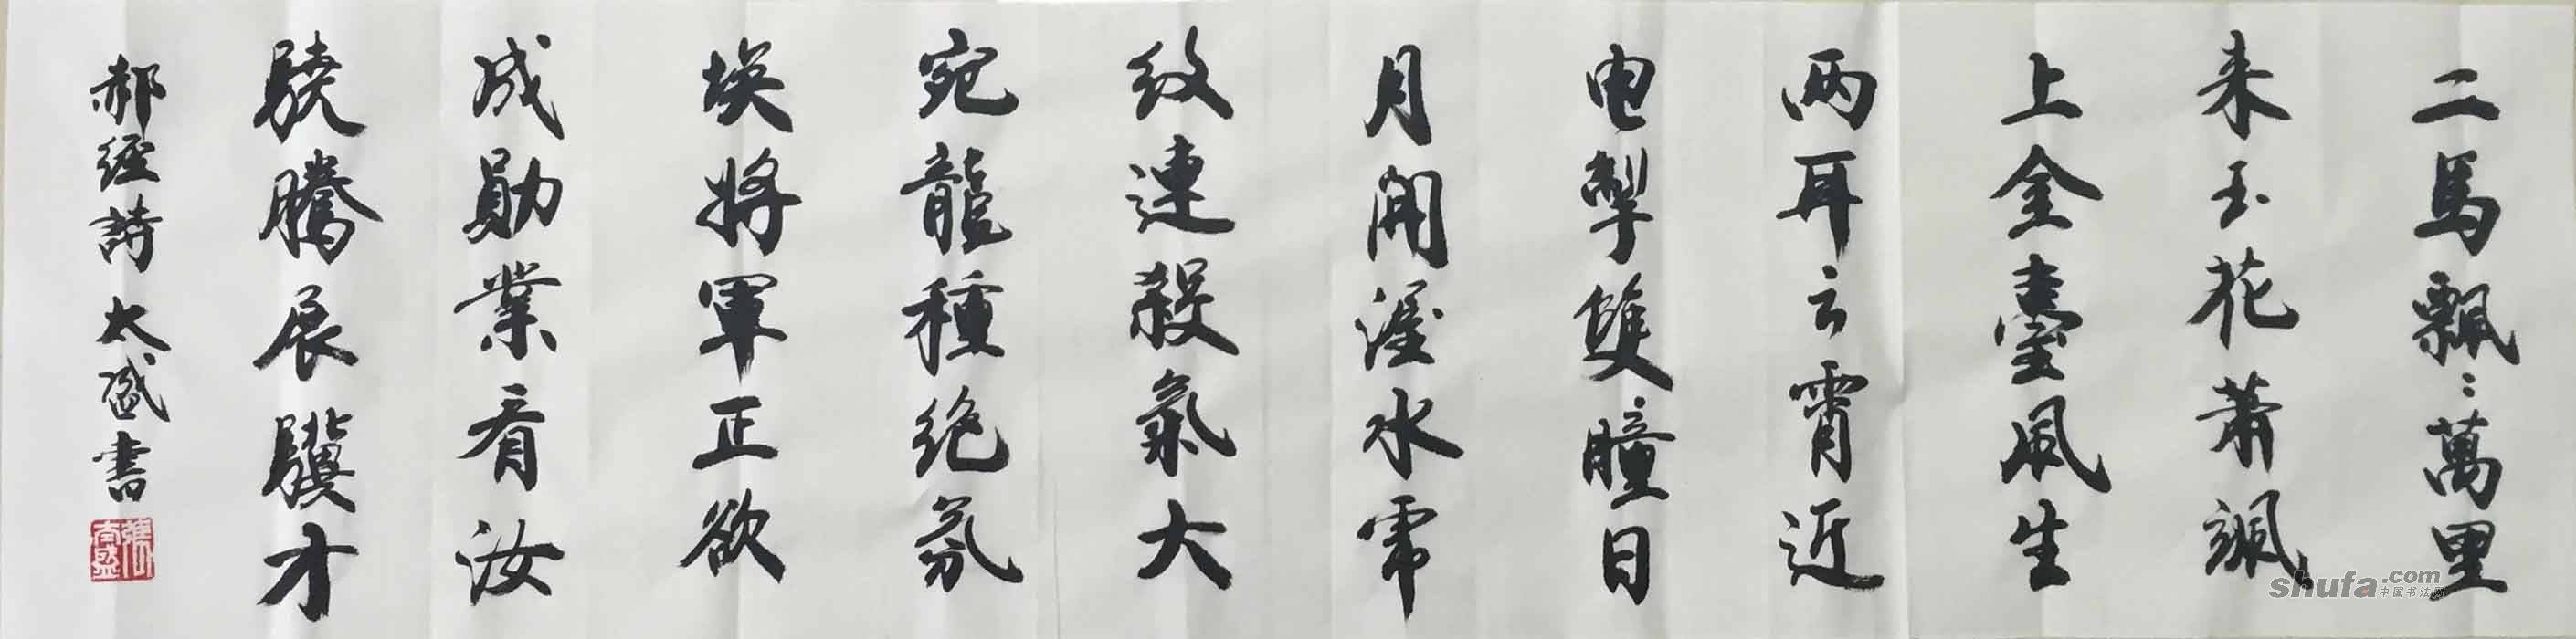 二馬飄〻萬里
来玉花萧颯
上金臺風生
两耳云霄近
电掣雙瞳日
月開渥水乕
纹連殺氣大
宛龍種绝氛
埃將軍正欲
成勛業看汝
驍騰展驥才
郝經詩 太盛書
shufa.com
中国书法网